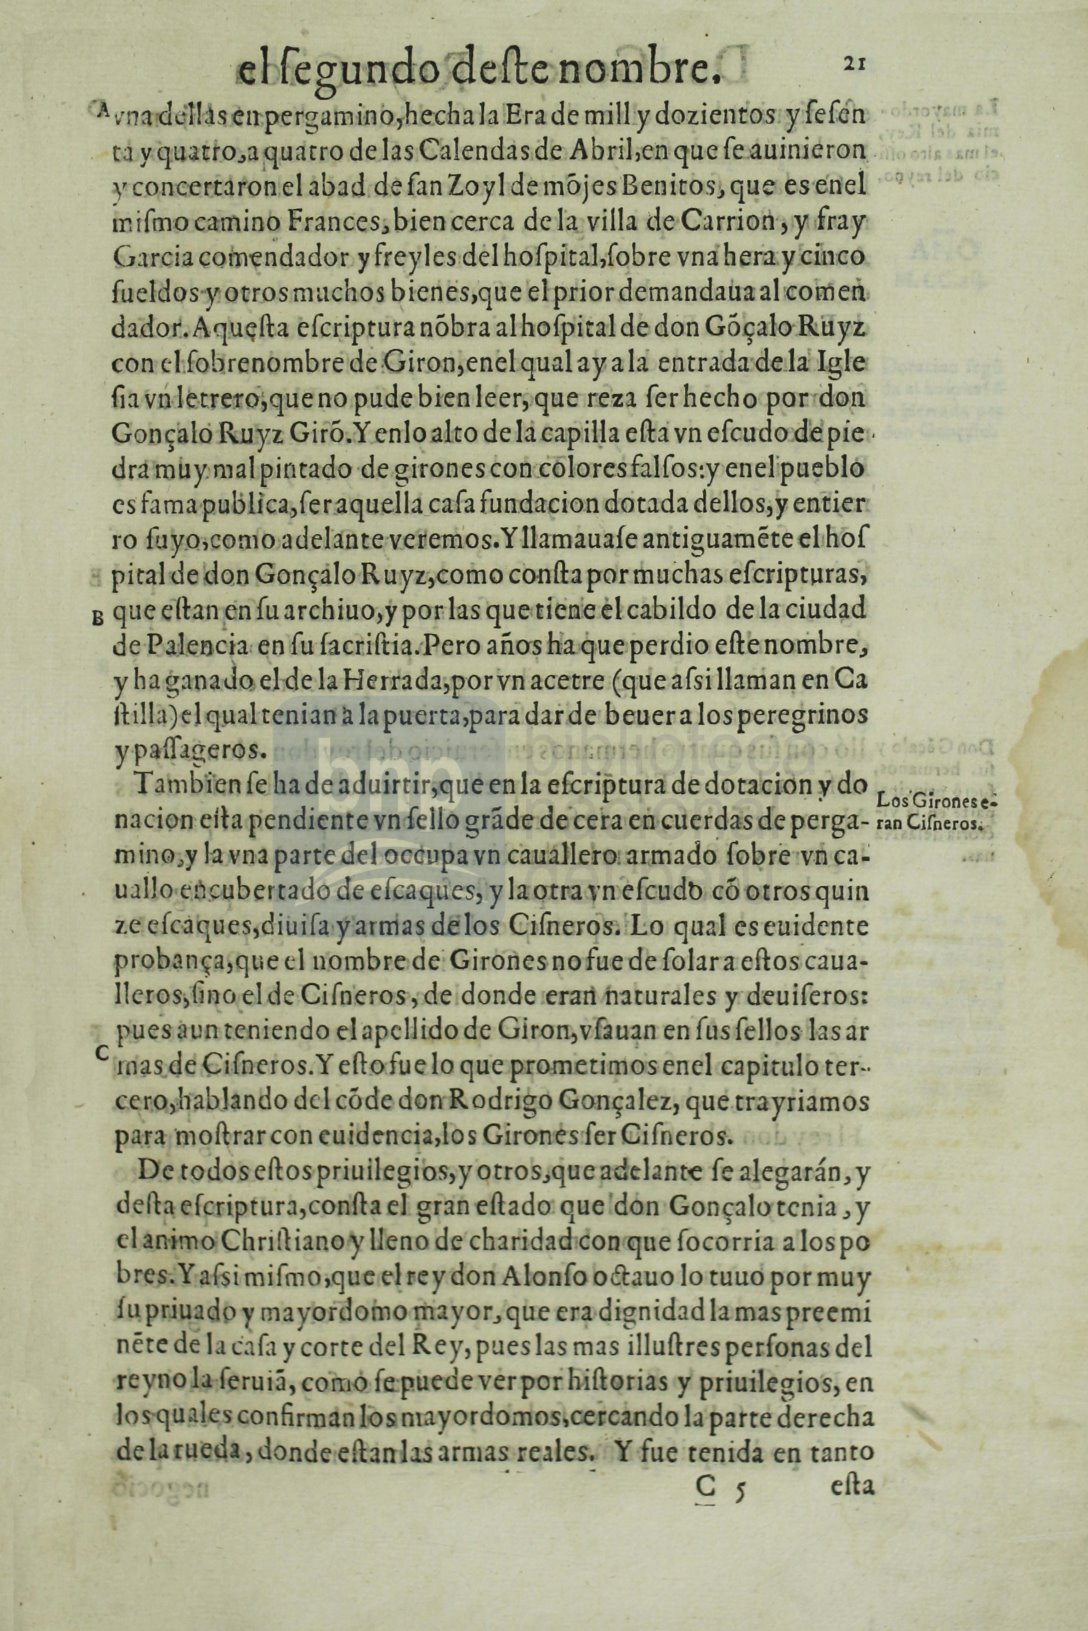 el ſegundo deſte nombre. 21
A vna dellas en pergamino, hecha la Era de mill y dozientos y ſeſen
ta y quatro, a quatro de las Calendas de Abril, en que ſe auinieron
y concertaron el abad de ſan Zoyl de mõjes Benitos, que es enel
miſmo camino Frances, bien cerca de la villa de Carrion, y fray
Garcia comendador y freyles del hoſpital, ſobre vna hera y cinco
ſueldos y otros muchos bienes, que el prior demandaua al comen
dador. Aqueſta eſcriptura nõbra al hoſpital de don Gõçalo Ruyz
con el ſobrenombre de Giron, enel qual ay a la entrada de la Igle
ſia vn letrero, que no pude bien leer, que reza ſer hecho por don
Gonçalo Ruyz Girõ. Y enlo alto de la capilla eſta vn eſcudo de pie
dra muy mal pintado de girones con colores falſos: y enel pueblo
es fama publica, ſer aquella caſa fundacion dotada dellos, y entier
ro ſuyo, como adelante veremos. Y llamauaſe antiguamẽte el hoſ
pital de don Gonçalo Ruyz, como conſta por muchas eſcripturas,
B que eſtan en ſu archiuo, y por las que tiene el cabildo de la ciudad
de Palencia en ſu ſacriſtia. Pero años ha que perdio eſte nombre,
y ha ganado el de la Herrada, por vn acetre (que aſsi llaman en Ca
ſtilla) el qual tenian a la puerta, para dar de beuer a los peregrinos
y paſſageros.
Tambien ſe ha de aduirtir, que en la eſcriptura de dotacion y do
nacion eſta pendiente vn ſello grãde de cera en cuerdas de perga-
mino, y la vna parte del occupa vn cauallero armado ſobre vn ca-
uallo encubertado de eſcaques, y la otra vn eſcudo cõ otros quin
ze eſcaques, diuiſa y armas de los Ciſneros. Lo qual es euidente
probança, que el nombre de Girones no fue de ſolar a eſtos caua-
lleros, ſino el de Ciſneros, de donde eran naturales y deuiſeros:
pues aun teniendo el apellido de Giron, vſauan en ſus ſellos las ar
C mas de Ciſneros. Y eſto fue lo que prometimos enel capitulo ter-
cero, hablando del cõde don Rodrigo Gonçalez, que trayriamos
para moſtrar con euidencia, los Girones ſer Ciſneros.
Los Girones e-
ran Ciſneros.
De todos eſtos priuilegios, y otros, que adelante ſe alegarán, y
deſta eſcriptura, conſta el gran eſtado que don Gonçalo tenia, y
el animo Chriſtiano y lleno de charidad con que ſocorria a los po
bres. Y aſsi miſmo, que el rey don Alonſo octauo lo tuuo por muy
ſu priuado y mayordomo mayor, que era dignidad la mas preemi
nẽte de la caſa y corte del Rey, pues las mas illuſtres perſonas del
reyno la ſeruiã, como ſe puede ver por hiſtorias y priuilegios, en
los quales confirman los mayordomos, cercando la parte derecha
de la rueda, donde eſtan las armas reales. Y fue tenida en tanto
C 5 eſta